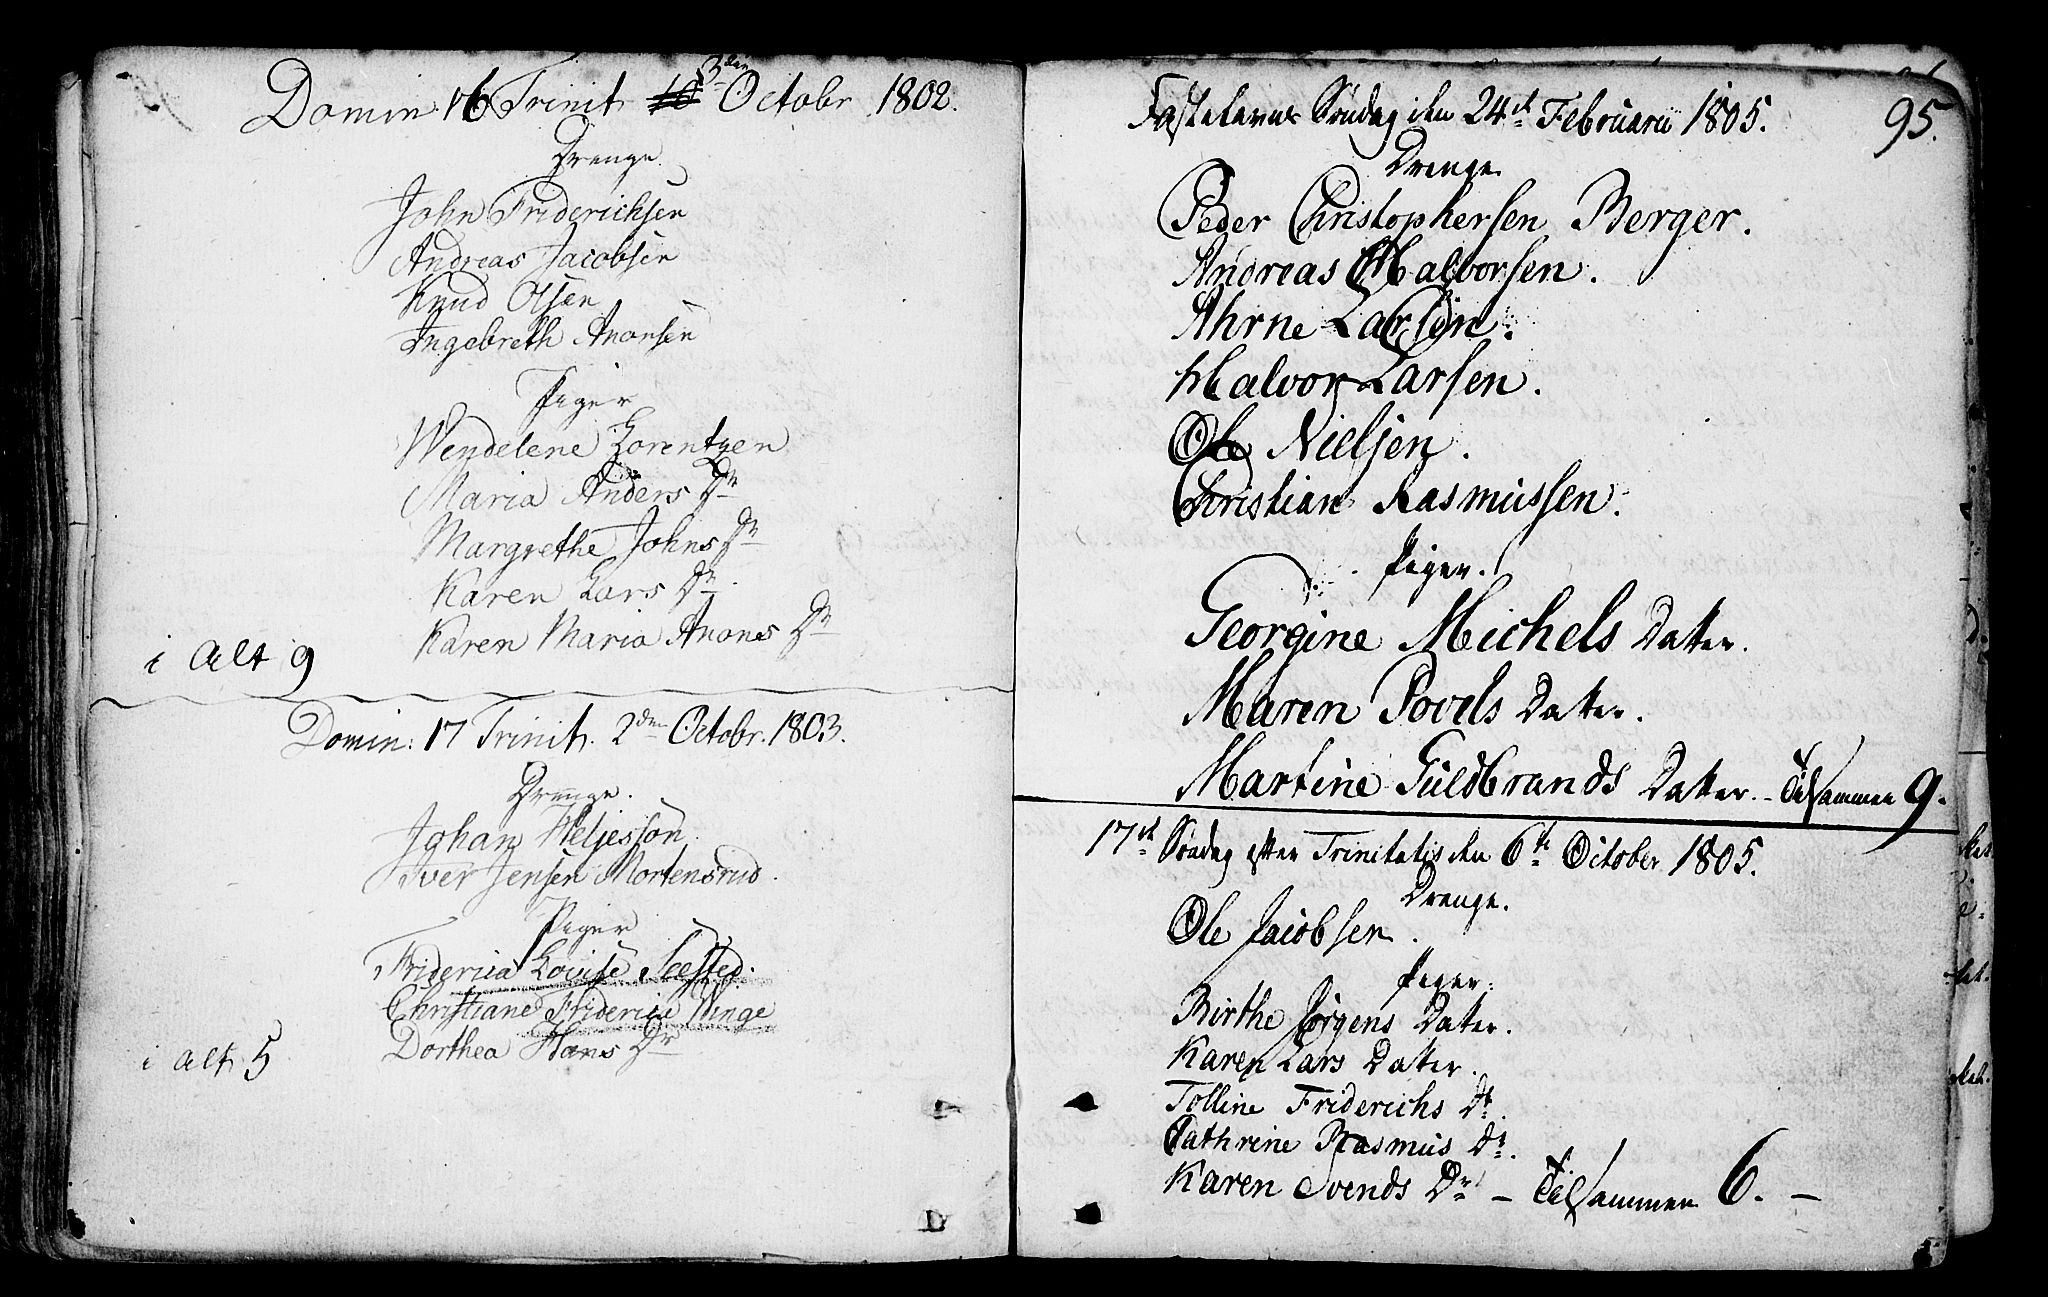 Domin: 16 Trinit 10 3den Octobr 1802.
Drenge
John Friderichsen
Andreas Jacobsen
Knud Olsen
Ingebreth Anonsen
Piger
Wendelene Lorentzen
Maria Anders Dr
Margrethe Johns Dr
Karen Lars Dr
Karen Maria Anones Dr
i Alt 9
Domin: 17 Trinit. 2den Octobr. 1803.
Drenge.
Johan Heljesson
Iver Jensen Mortensrud.
Piger
Friderica Lovise Seested.
Christiane Friderica Winge
Dorthea Hans Dr
i alt 5
95.
Fastelavns Søndag den 24de Februarii 1805.
Drenge
Peder Christophersen Berger.
Andreas Halvorsen.
Ahrne Larsen.
Halvor Larsen.
Ole Nielsen.
Christian Rasmussen.
Piger.
Georgine Michels Datter.
Maren Povels Datter.
Martine Guldbrands Datter. – Tilsammen 9.
17de Søndag efter Trinitatis den 6te October 1805.
Drenge.
Ole Jacobsen.
Piger.
Birthe Jørgens Dater.
Karen Lars Datter.
Tolline Friderichs Dr.
Cathrine Rasmus Dr.
Karen Svends Dr – Tilsammen 6. –